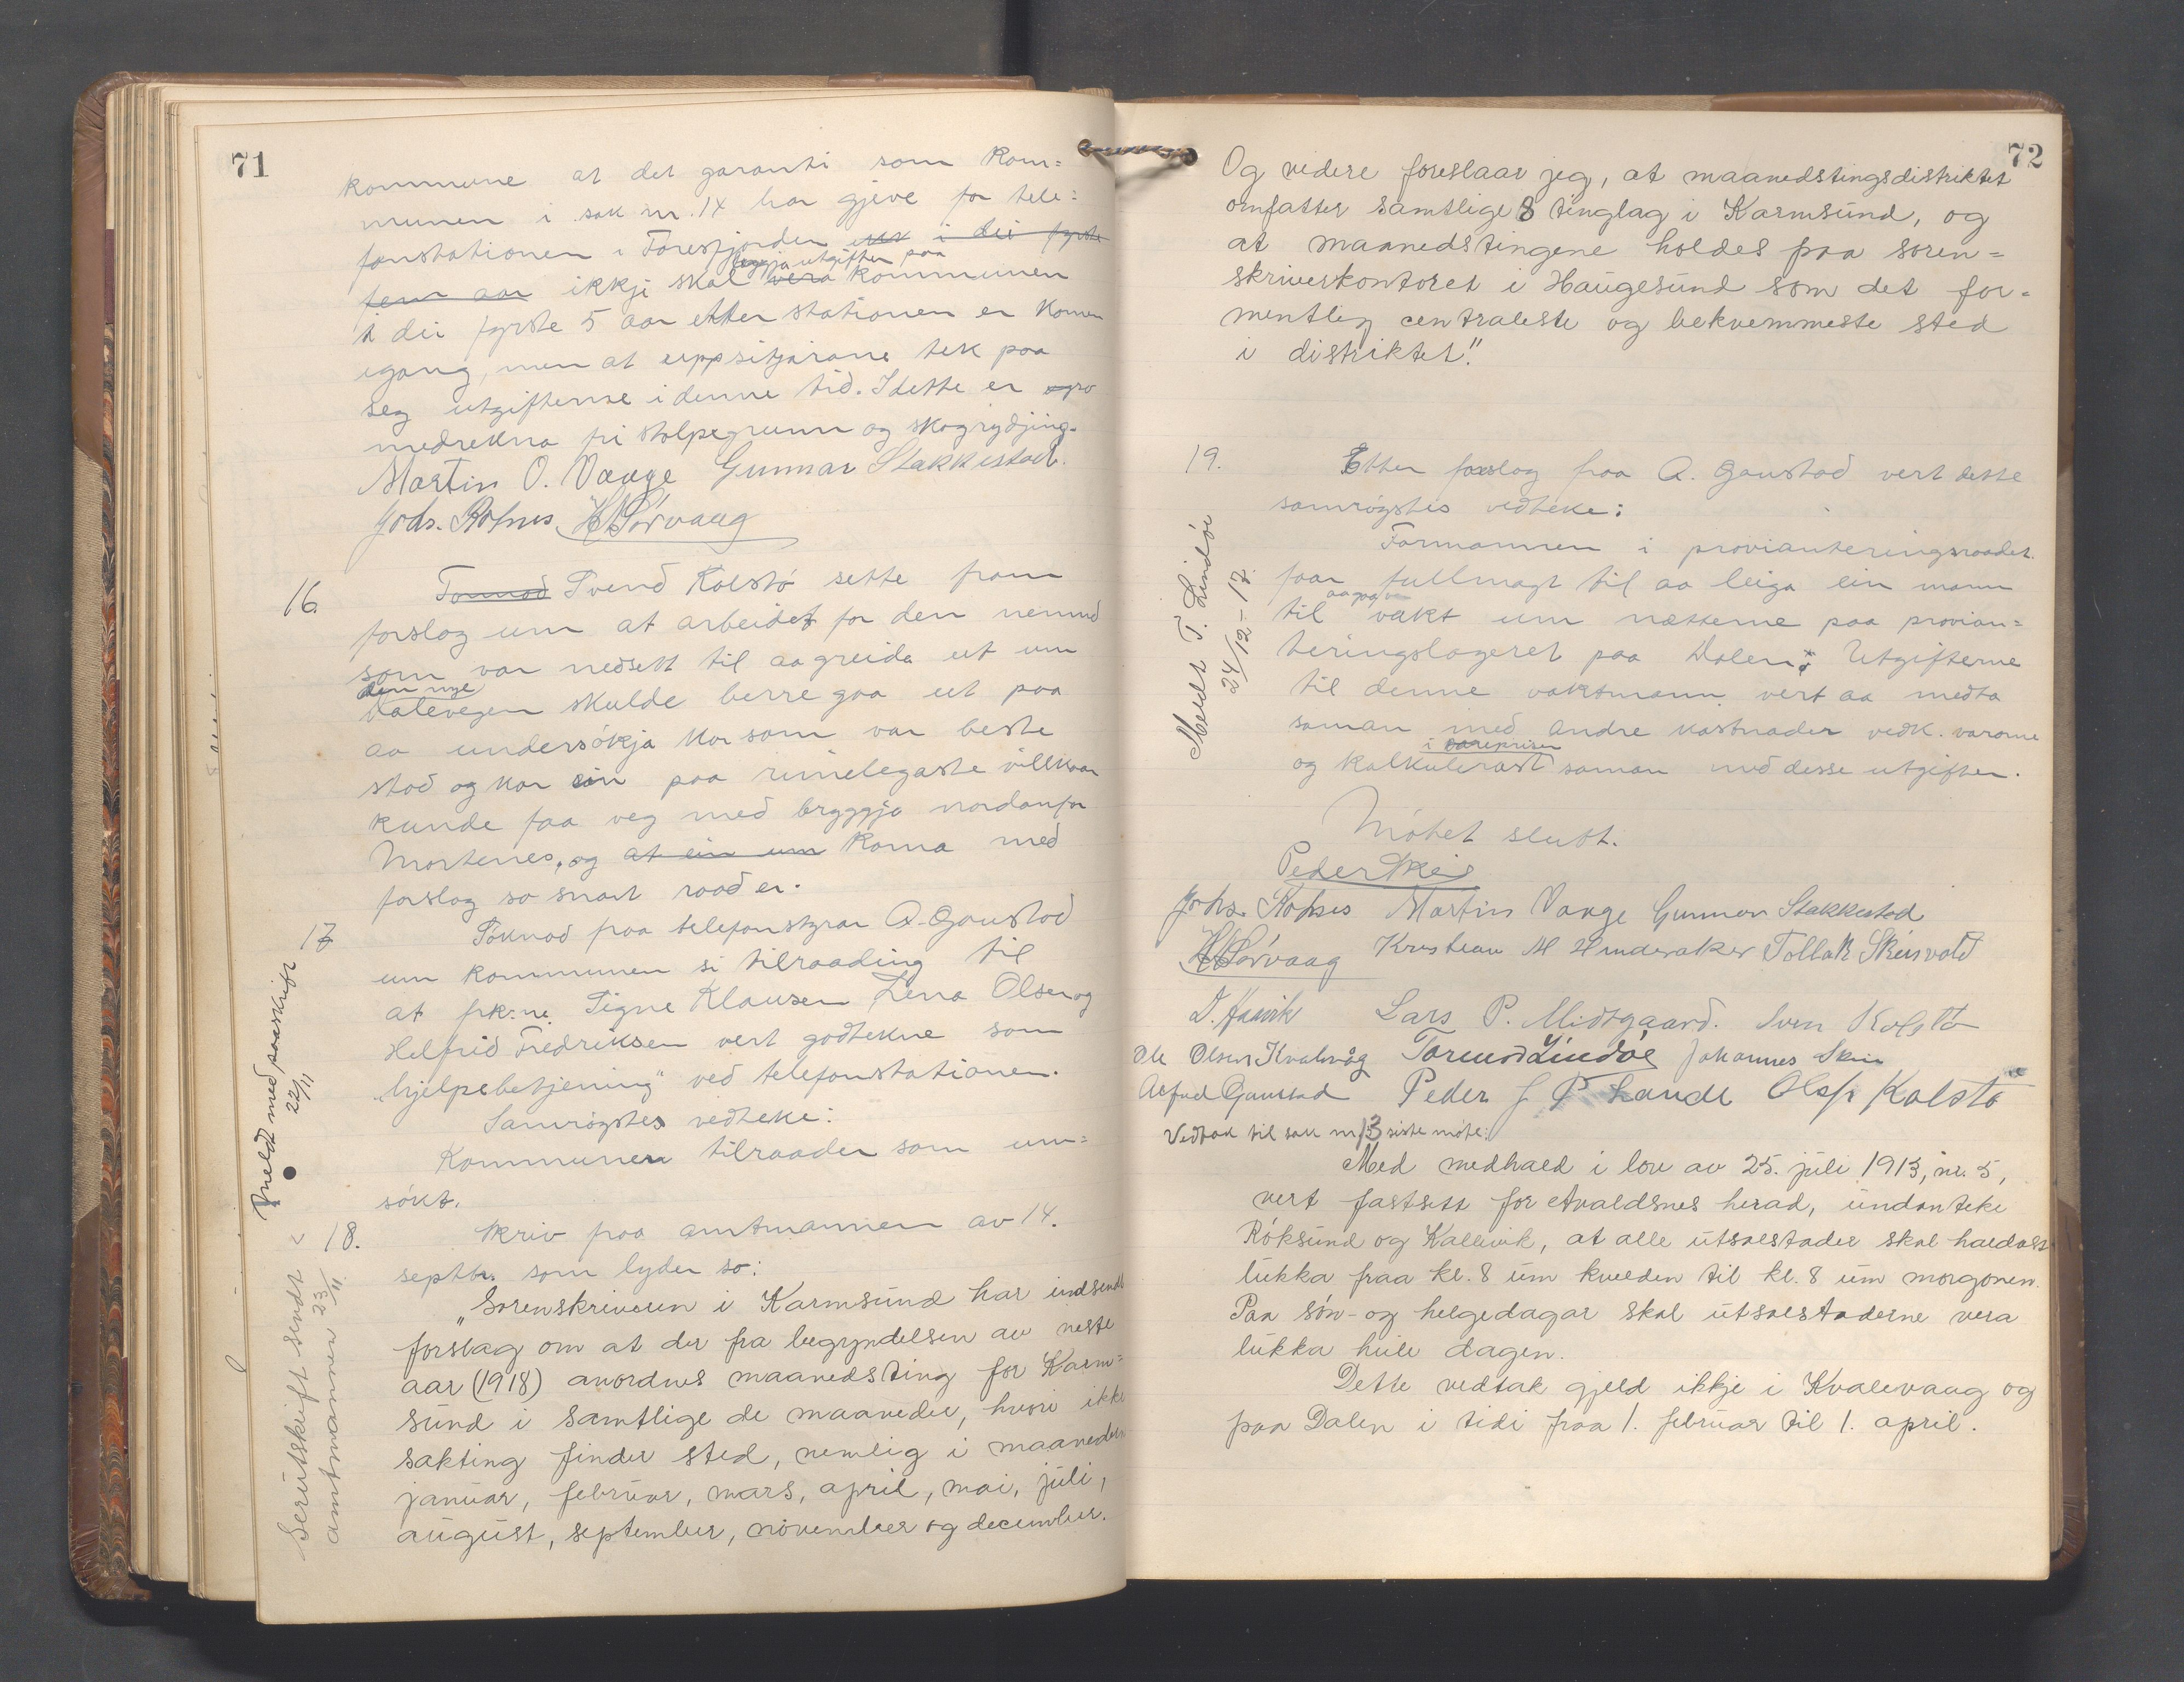 71
kommune at det garanti som kom=
munen i sak nr. 14 har gjeve for tele=
fonstationen i Førresfjorden i dei fyrste
fem aar ikkje skal leggja utgifter paa vera kommunen
i dei fyrste 5 aar etter stationen er komen
igang, men at uppsitjarane tek paa
seg utgifterne i denne tid. I dette er
medrekna fri stolpegrunn og skogrydjing.
Martin O. Vaage Gunnar Stakkestad.
Johs. Røksnes H. Sørvaag
16. Tormod Svend Kolstø sette fram
forslag um at arbeidet for den nemnd
som var nedsett til aa greida ut um
den nye
Dalevegen skulde berre gaa ut paa
aa undersøkja kor som var beste
stad og kor ein paa rimelegaste villkaar
kunde faa veg med bryggja nordanfor
Mortenes, og at ein um koma med
forslag so snart raad er.
17 Søknad fraa telefonstyrar A. Gaustad
um kommunen si tilraading til
at frk:ne. Signe Klausen Lena Olsen og
Helfrid Fredriksen vert godtekne som
„hjelpebetjening" ved telefonstationen.
Samrøystes vedteke:
Kommunen tilraader som um=
søkt.
Meldt med paaskrift
22/11
18. Skriv fraa amtmannen av 14.
septbr. som lyder so:
„Sorenskriveren i Karmsund har indsendt
forslag om at der fra begyndelsen av neste
aar (1918) anordnes maanedsting for Karm=
sund i samtlige de maaneder, hvori ikke
sakting finder sted, nemlig i maaneden
januar, februar, mars, april, mai, juli,
august, september, november og december.
Serutskrift sendt
amtmannen 23/11.
72
Og videre foreslaar jeg, at maanedstingsdistriktet
omfatter samtlige 8 tinglag i Karmsund, og
at maanedstingene holdes paa soren=
skriverkontoret i Haugesund som det for-
mentlig centraleste og bekvemmeste sted
i distriktet."
19. Etter forslag fraa A. Gaustad vert dette
samrøystes vedteke:
Formannen i provianteringsraadet
faar fullmagt til aa leiga ein mann
til aa gaa vakt um nætterne paa provian=
teringslageret paa Dalen. Utgifterne
til denne vaktmann vert aa medta
saman med andre kostnader vedk. vararne
i vareprisen
og kalkulerast saman med desse utgifter.
Meldt T. Lindøe
24/12-17.
Møtet slutt.
Peder Skeie
Johs. Røksnes Martin Vaage Gunnar Stakkestad
H. Sørvaag Kristian M Hinderaker Tollak Skeisvold
D. Hauvik Lars P. Midtgaard. Sven Kolstø
Ole Olsen Kvalavåg Tormod Lindøe Johannes Skeie
Alfred Gaustad Peder J P Lande Olaf Kolstø
Vedtak til sak nr 13 siste møte:
Med medhald i lov av 25. juli 1913, nr. 5,
vert fastsett for Avaldsnes herad, undanteke
Røksund og Kallevik, at alle utsalstader skal haldast
lukka fraa kl. 8 um kvelden til kl. 8 um morgonen.
Paa søn- og helgedagar skal utsalstaderne vera
lukka heile dagen.
Dette vedtak gjeld ikkje i Kvalevaag og
paa Dalen i tidi fraa 1. februar til 1. april.